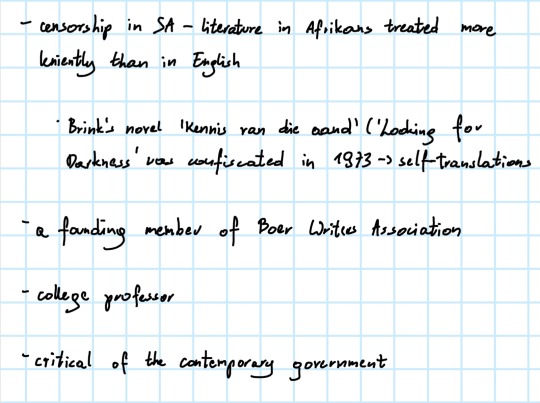 - censorship in SA - literature in Afrikans treated more
leniently than in English
· Brink's novel 'Kennis van die aand' ('Looking for
Darkness' was confiscated in 1973 -> self-translations
- a founding member of Boer Writers Association
- college professor
- critical of the contemporary government